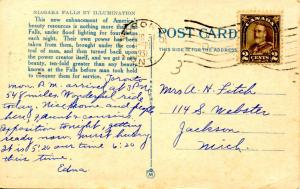 NIAGARA FALLS BY ILLUMINATION
This new enhancement of America's
beauty resources is nothing more than the
Falls, under flood lighting for fourteen
out night. Their own power has been
taken from them, brought under the con-
trol of man, and then turned back upon
the power creator itself, and we get a new
beauty, ten-fold greater than any beauty
known at the Falls before man took hold
to conquer them for service.
POST CARD
THIS SIDE IS FOR THE ADDRESS
CANADA
2 CENTS 2
3
Toronto
Mon. P.M. arrived at 3
548 miles. Wonderful ride
today. Nice home and people
here, 4 aunt & cousins.
Exposition tonight, getting
ready now. Must hurry.
It is 5:20 our time 6:20
this time.
Edna
Mrs A H Fitch
114 S. Webster
Jackson
Mich.